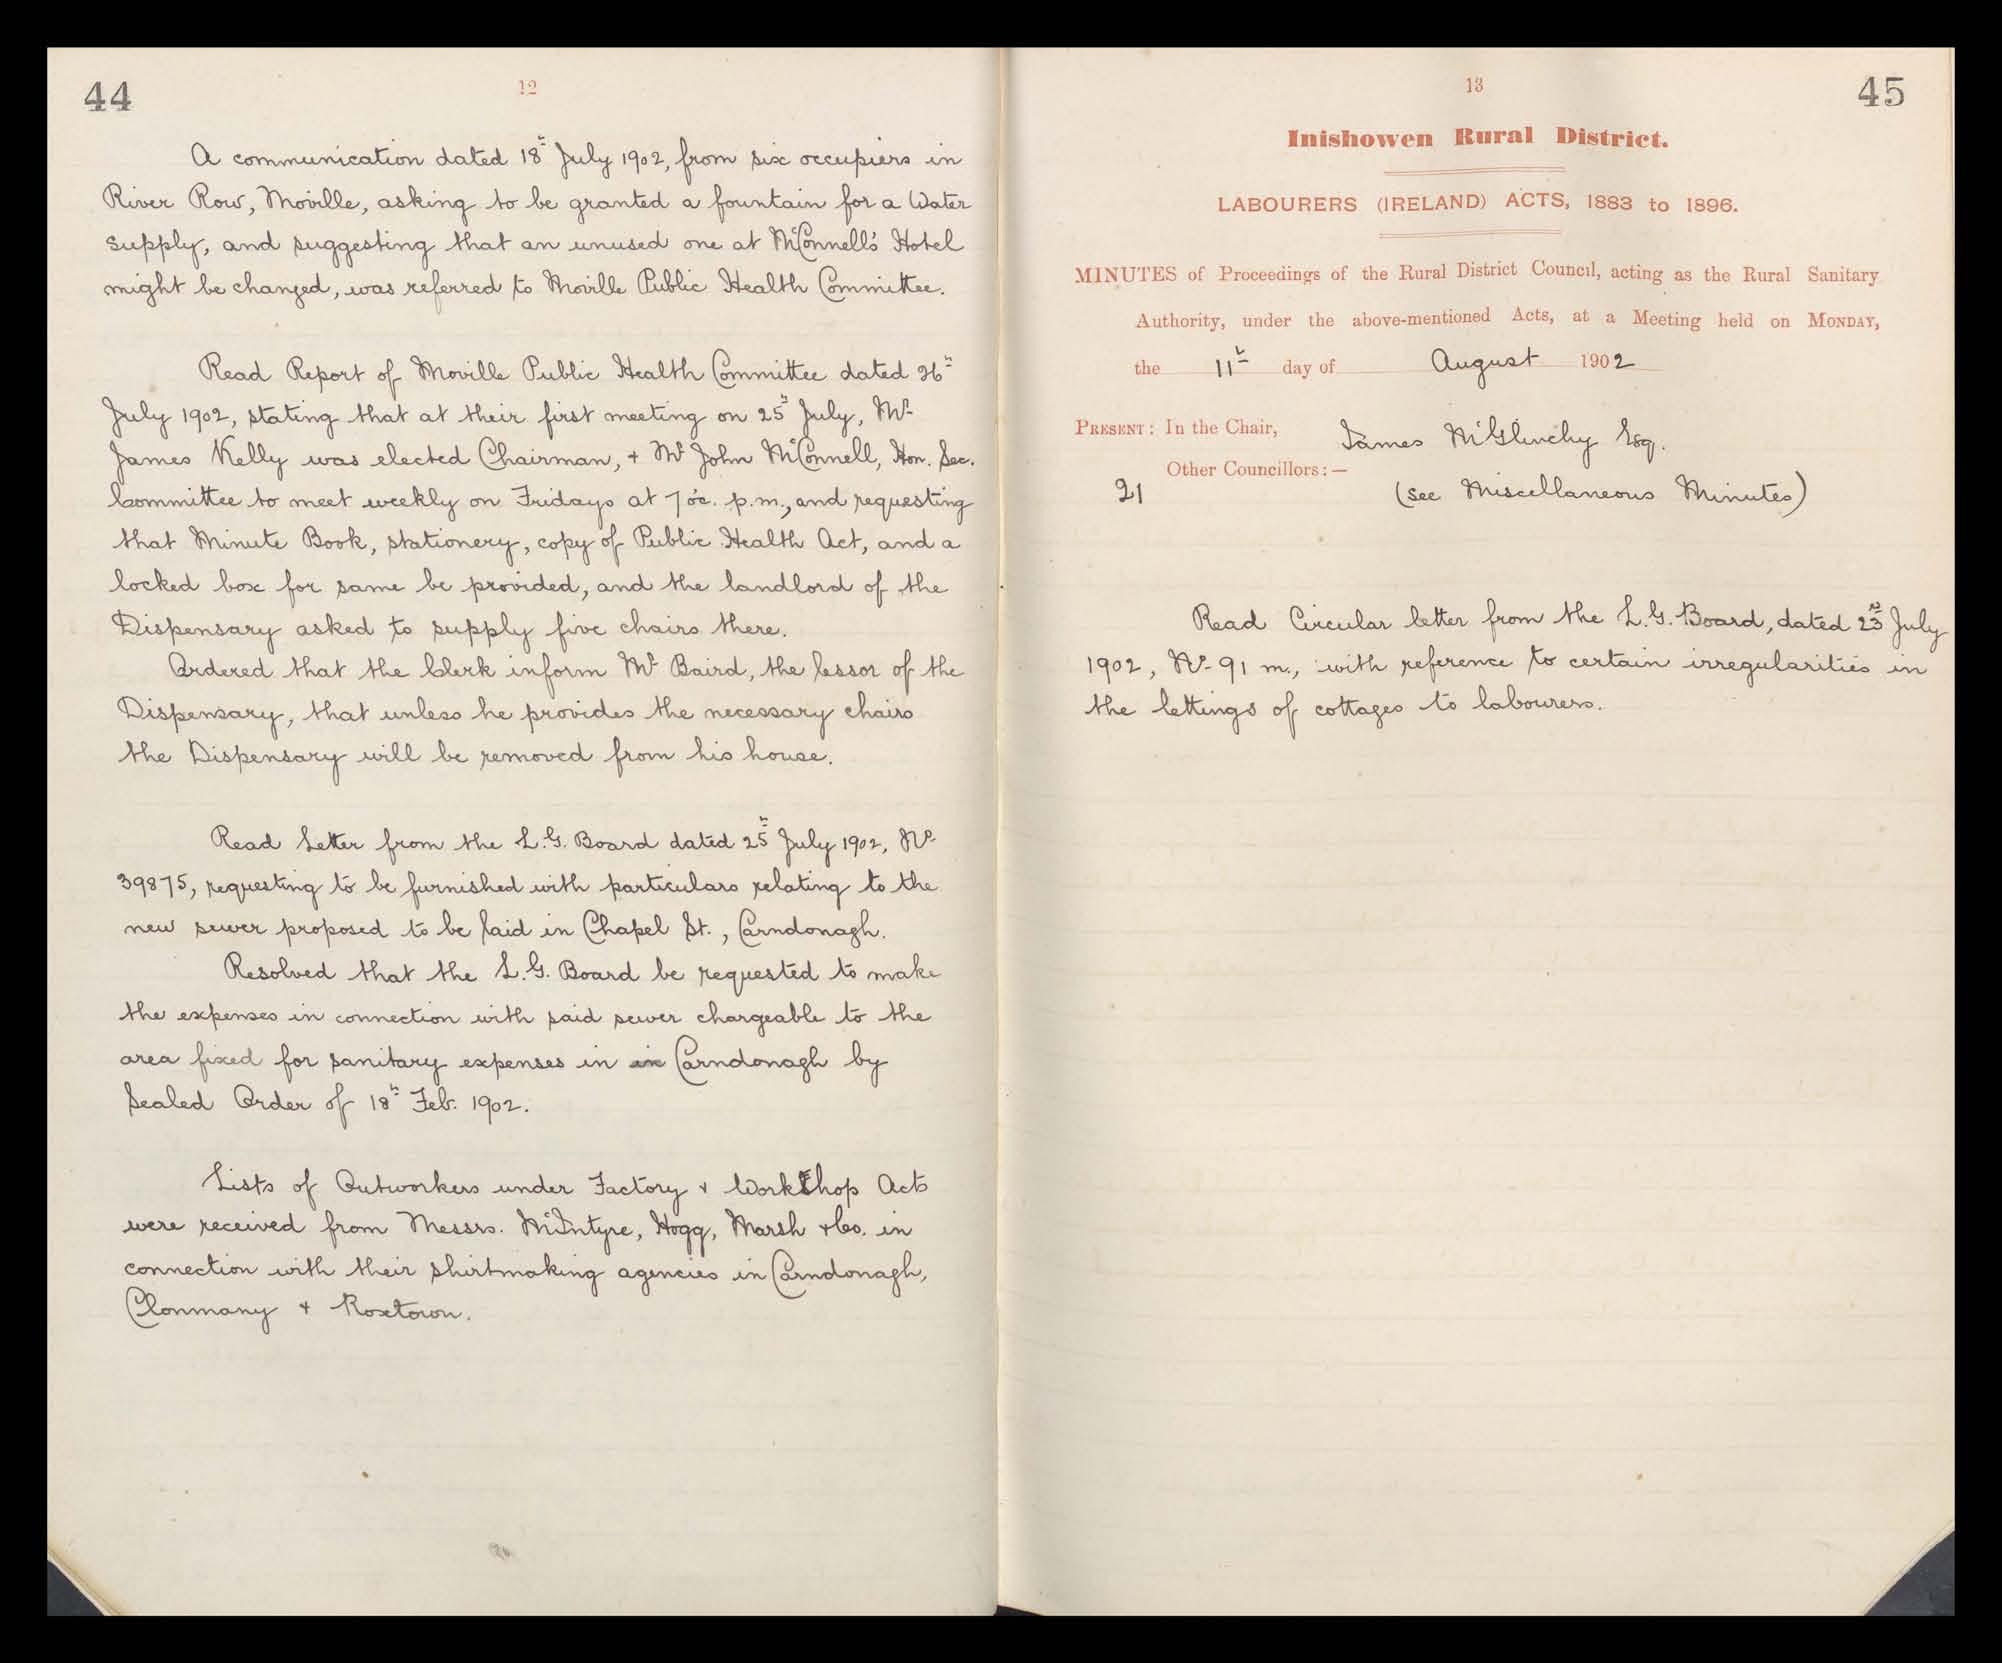 44
12
A communication dated 18th July 1902, from six occupiers in
River Row, Moville, asking to be granted a fountain for a Water
supply, and suggesting that an unused one at McConnell's Hotel
might be changed, was referred to Moville Public Health Committee.
Read Report of Moville Public Health Committee dated 26th
July 1902, stating that at their first meeting on 25th July, Mr
James Kelly was elected Chairman, + Mr John McConnell, Hon. Sec.
Committee to meet weekly on Fridays at 7 o'c. p.m., and requesting
that Minute Book, stationery, copy of Public Health Act, and a
locked box for same be provided, and the landlord of the
Dispensary asked to supply five chairs there.
Ordered that the Clerk inform Mr Baird, the lessor of the
Dispensary, that unless he provides the necessary chairs
the Dispensary will be removed from his house.
Read Letter from the L.G. Board dated 25th July 1902, No.
39875, requesting to be furnished with particulars relating to the
new sewer proposed to be laid in Chapel St., Carndonagh.
Resolved that the L.G. Board be requested to make
the expenses in connection with said sewer chargeable to the
area fixed for sanitary expenses in in Carndonagh by
Sealed Order of 18th Feb. 1902.
Lists of Outworkers under Factory + Workshop Acts
were received from Messrs. McIntyre, Hogg, Marsh + Co. in
connection with their shirtmaking agencies in Carndonagh,
Clonmany + Roxtown.
13
45
Inishowen Rural District.
LABOURERS (IRELAND) ACTS, 1883 to 1896.
MINUTES of Proceedings of the Rural District Council, acting as the Rural Sanitary
Authority, under the above-mentioned Acts, at a Meeting held on MONDAY,
the 11th day of August 1902
PRESENT: In the Chair, James McGlinchy Esq.
Other Councillors:—
21 (see Miscellaneous Minutes)
Read Circular letter from the L.G. Board, dated 23rd July
1902, No. 91 m., with reference to certain irregularities in
the lettings of cottages to labourers.